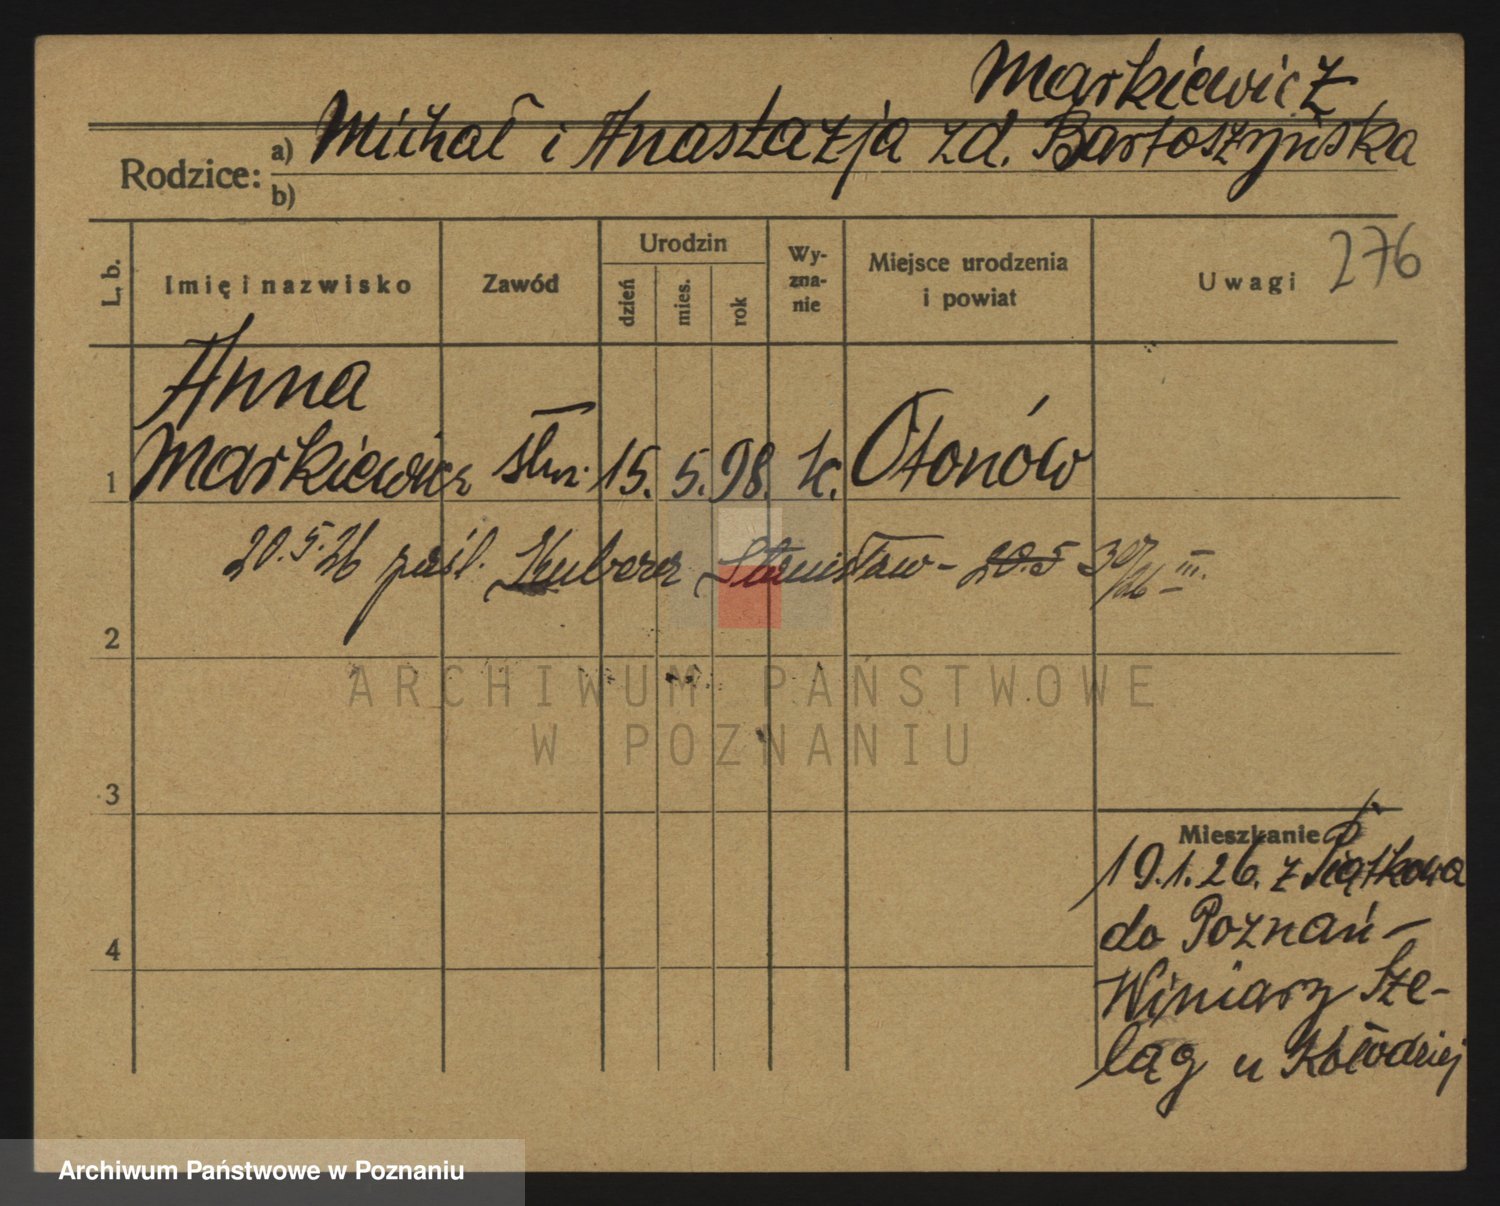 Markiewicz
Rodzice:
a) Michał i Anastazja zd. Bartoszyńska
b)
276
L. b.
Imię i nazwisko
Zawód
Urodzin
dzień
mies.
rok
Wy-
zna-
nie
Miejsce urodzenia
i powiat
Uwagi
Anna
1 Markiewicz służ. 15. 5. 98. k. Otonów
20.5.26 Stanisław - 20.5 III.
2
3
4
Mieszkanie
19.1.26. z Piątkowa
do Poznań-
Winiary Sze-
ląg u Kołodziej
ARCHIWUM PAŃSTWOWE
W POZNANIU
Archiwum Państwowe w Poznaniu